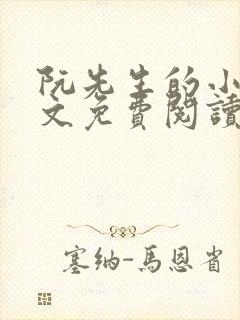 阮先生的小
文免費閱讀
塞纳-馬恩省